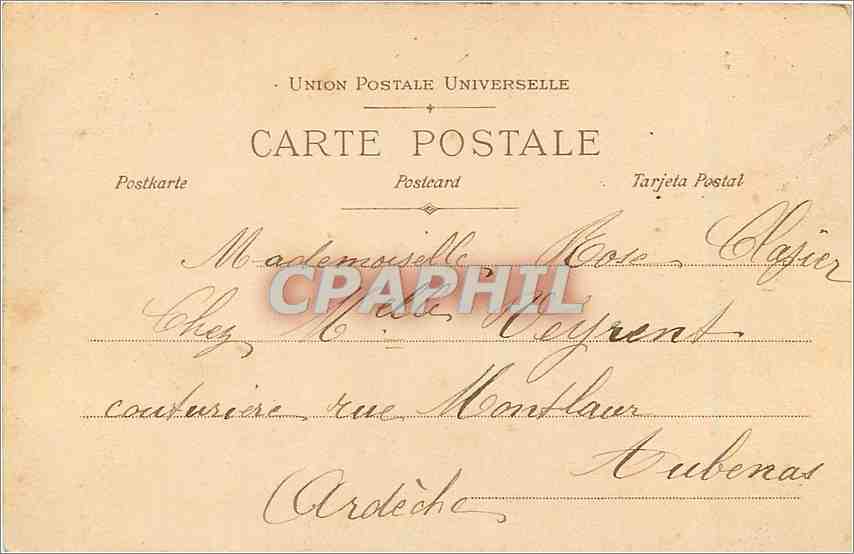 UNION POSTALE UNIVERSELLE
CARTE POSTALE
Postkarte Postcard Tarjeta Postal
Mademoiselle Rose
CPAPHIL
Chez Melle Veyrent
couturière rue Montlaur
Aubenas
(Ardèche